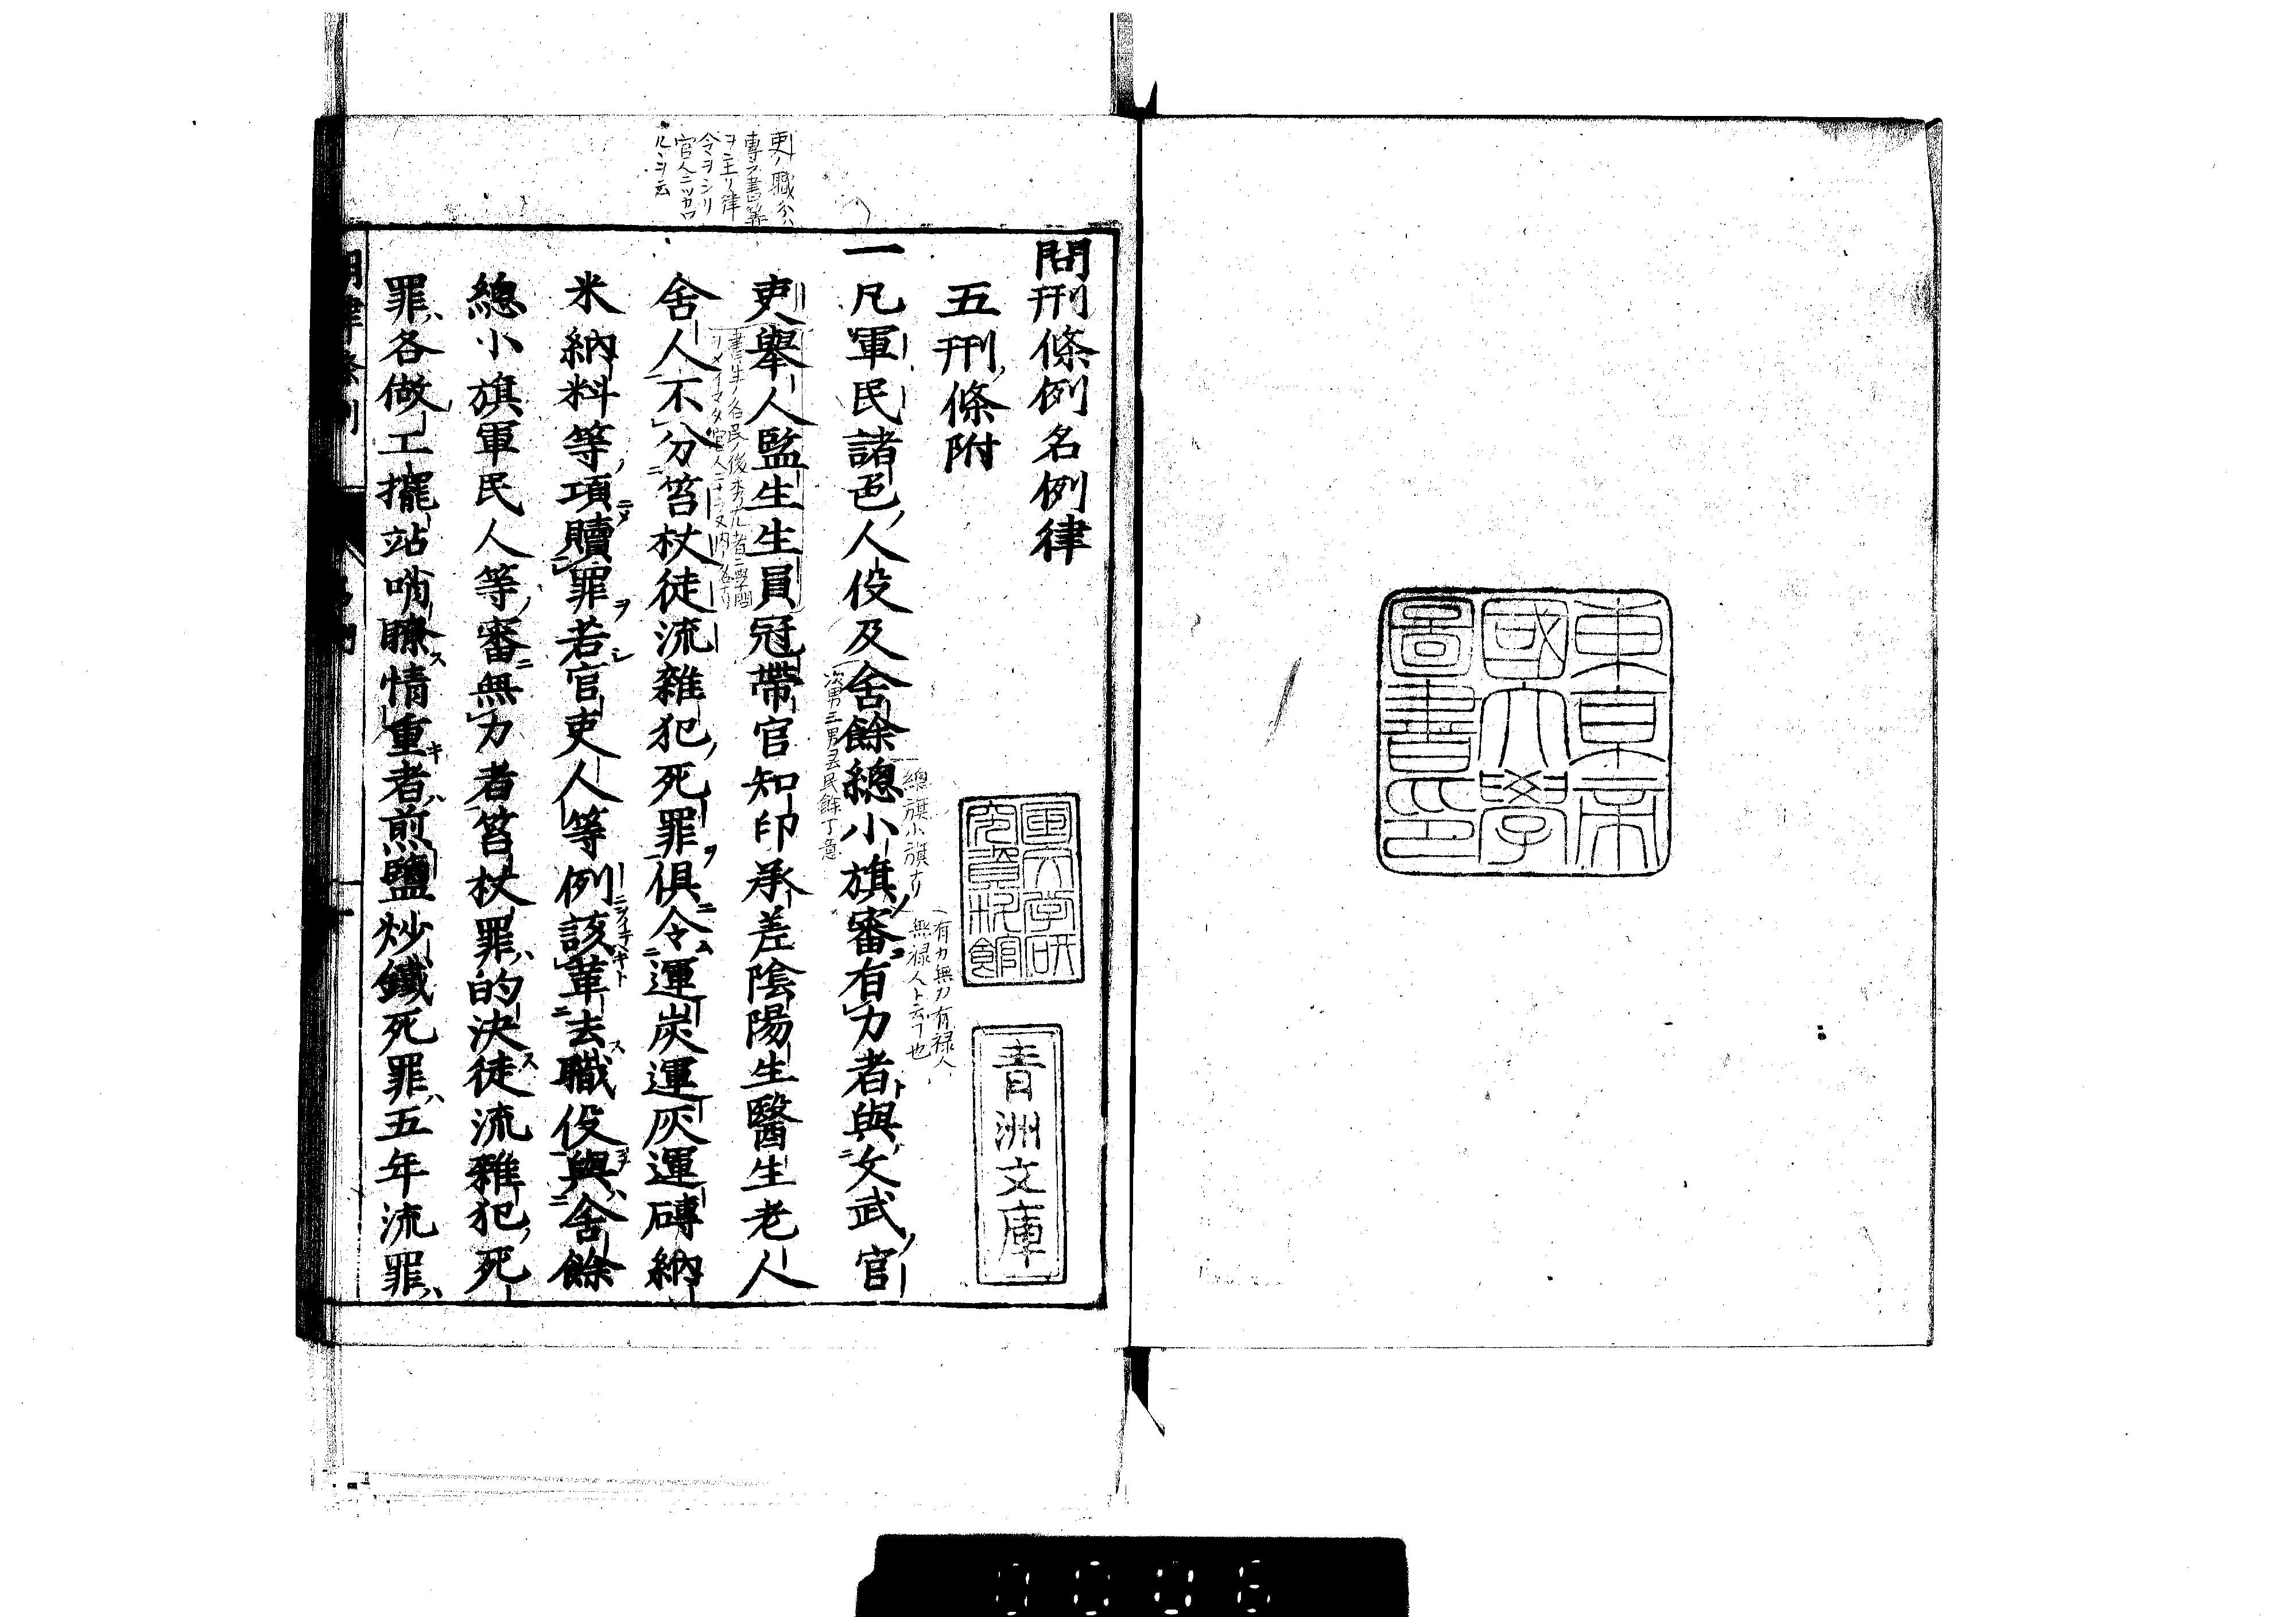 東京帝
國大學
圖書印
問刑條例名例律
五刑條附
一凡軍民諸色人役及舍餘總小旗審有力者與文武官
吏舉人監生生員冠帶官知印承差陰陽生醫生老人
舍人不分笞杖徒流雜犯死罪俱令運炭運灰運磚納
米納料等項贖罪若官吏人等例該革去職役與舍餘
總小旗軍民人等審無力者笞杖罪的決徒流雜犯死
罪各做工擺站哨瞭情重者煎鹽炒鐵死罪五年流罪
吏ノ職分ハ
專ラ書筭
ヲ主リ律
令ヲシリ
官人ニツカハ
ルヽヲ云
總旗小旗ナリ
有力無力有禄人
無禄人ト云フ也
次男三男云民餘丁意
青洲文庫